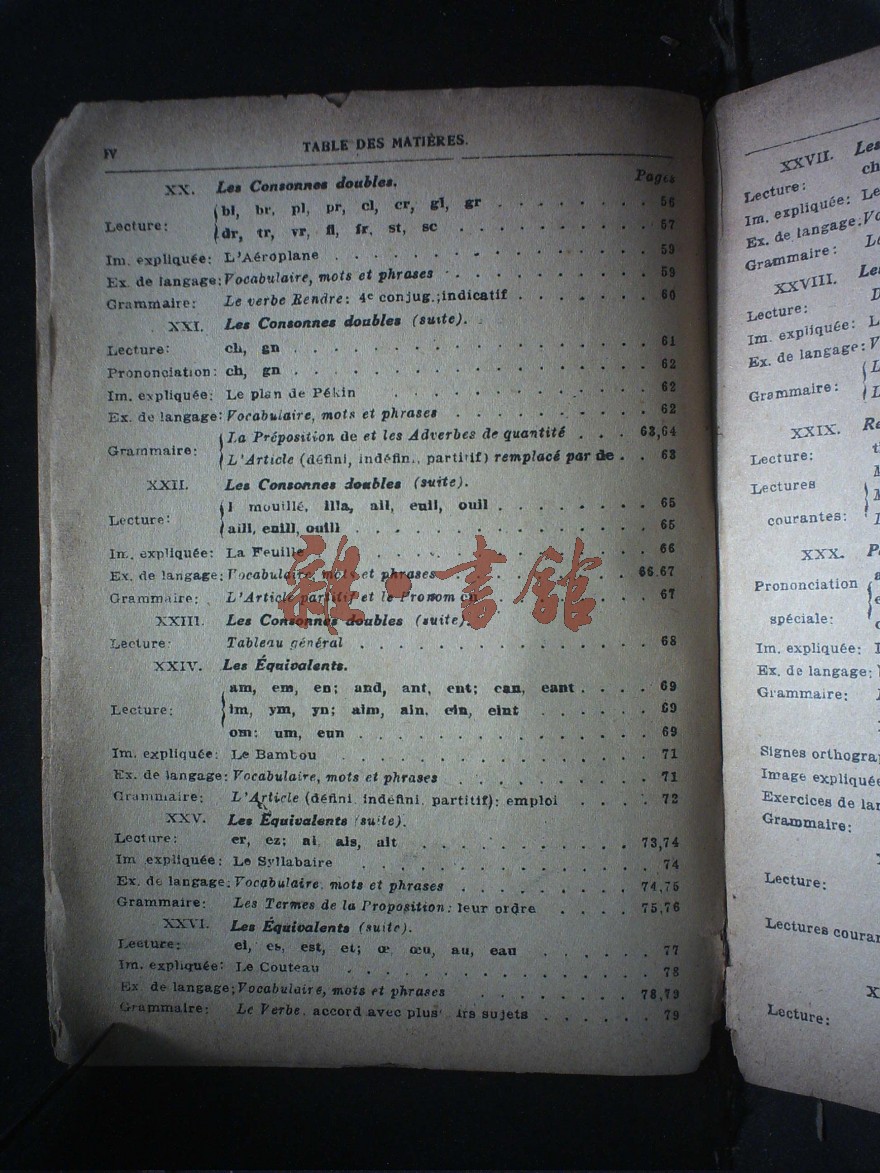 IV
TABLE DES MATIÈRES.
Pages
XX. Les Consonnes doubles.
bl, br, pl, pr, cl, cr, gl, gr . . . . . . . . 56
Lecture:
dr, tr, vr, fl, fr, st, sc . . . . . . . . . . 57
Im. expliquée: L'Aéroplane . . . . . . . . . . . . . . . 59
Ex. de langage: Vocabulaire, mots et phrases . . . . . . . . . . 59
Grammaire: Le verbe Rendre: 4e conjug.; indicatif . . . . . . . 60
XXI. Les Consonnes doubles (suite).
Lecture: ch, gn . . . . . . . . . . . . . . . . . 61
Prononciation: ch, gn . . . . . . . . . . . . . . . . . 62
Im. expliquée: Le plan de Pékin . . . . . . . . . . . . 62
Ex. de langage: Vocabulaire, mots et phrases . . . . . . . . . . 62
La Préposition de et les Adverbes de quantité . . . 63,64
Grammaire:
L'Article (défini, indéfin., partitif) remplacé par de . . 63
XXII. Les Consonnes doubles (suite).
l mouillé, illa, ail, euil, ouil . . . . . . . . 65
Lecture:
aill, euill, ouill . . . . . . . . . . . . . . 65
Im. expliquée: La Feuille . . . . . . . . . . . . . . 66
Ex. de langage: Vocabulaire, mots et phrases . . . . . . . . . 66.67
Grammaire: L'Article partitif et le Pronom en . . . . . . . . 67
雜·書館
XXIII. Les Consonnes doubles (suite).
Lecture: Tableau général . . . . . . . . . . . . . 68
XXIV. Les Équivalents.
am, em, en; and, ant, ent; can, eant . . . . 69
Lecture: im, ym, yn; aim, ain, ein, eint . . . . . . 69
om; um, eun . . . . . . . . . . . . . . 69
Im. expliquée: Le Bambou . . . . . . . . . . . . . . 71
Ex. de langage: Vocabulaire, mots et phrases . . . . . . . . . 71
Grammaire: L'Article (défini, indéfini, partitif); emploi . . . . 72
XXV. Les Équivalents (suite).
Lecture: er, ez; ai, ais, ait . . . . . . . . . . . 73,74
Im expliquée: Le Syllabaire . . . . . . . . . . . . . 74
Ex. de langage: Vocabulaire, mots et phrases . . . . . . . . . 74,75
Grammaire: Les Termes de la Proposition; leur ordre . . . . 75,76
XXVI. Les Équivalents (suite).
Lecture: ei, es, est, et; œ, œu, au, eau . . . . . . 77
Im. expliquée: Le Couteau . . . . . . . . . . . . . . 78
Ex de langage: Vocabulaire, mots et phrases . . . . . . . . 78,79
Grammaire: Le Verbe, accord avec plus irs sujets . . . . . . 79
XXVII. Les
Lecture: ch
Im. expliquée: Le
Ex. de langage: Vo
Grammaire: Le
XXVIII. Les
Lecture: D
Im. expliquée: L
Ex. de langage: V
L
Grammaire:
L
XXIX. Re
Lecture:
Lectures
courantes:
XXX. P
Prononciation
spéciale:
Im. expliquée:
Ex. de langage:
Grammaire:
Signes orthogra
Image expliquée
Exercices de lan
Grammaire:
Lecture:
Lectures couran
X
Lecture: